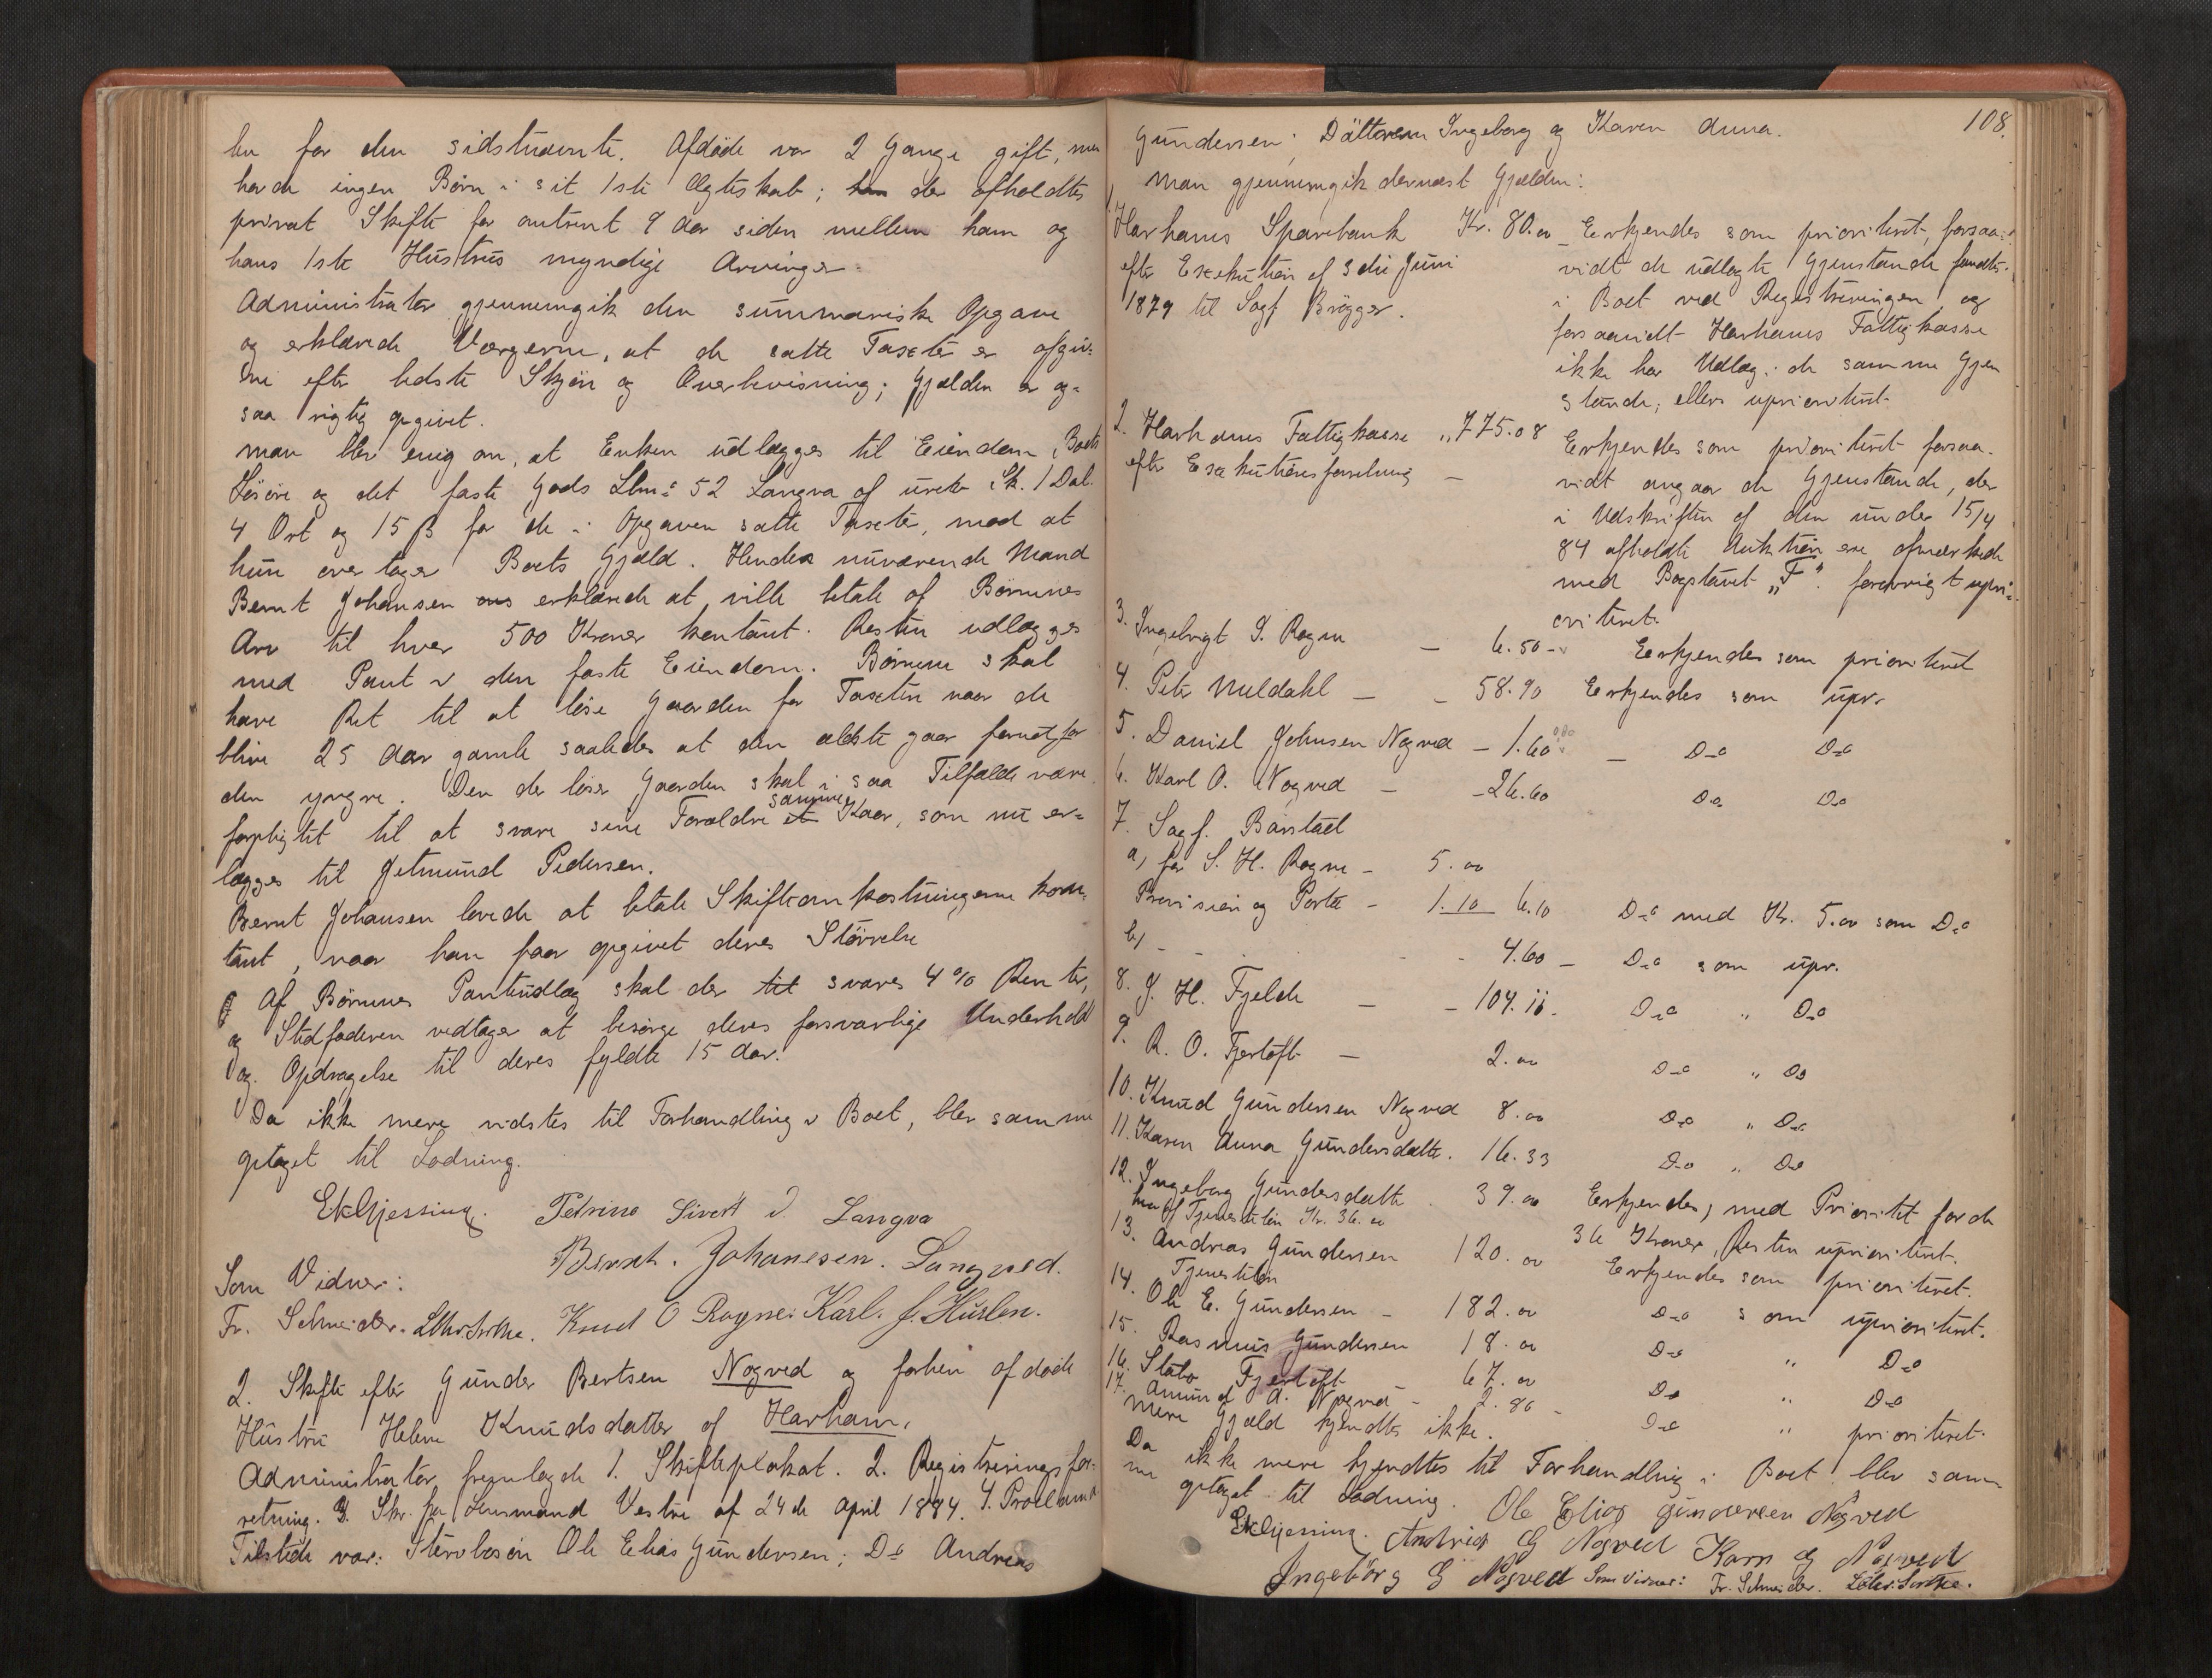 len for den sidstnævnte. Afdöde var 2 Gange gift, men
havde ingen Börn i sit 1ste Ægteskab; der afholdtes
privat Skifte for omtrent 9 Aar siden mellem ham og
hans 1ste Hustrus myndige Arvinger.
Administrator gjennemgik den summariske Opgave
og erklærede Værgerne, at de satte Taxter er afgiv-
ne efter bedste Skjön og Overbevisning; Gjælden er og-
saa rigtig opgivet.
Man blev enig om, at Enken udlægges til Eiendom Boets
Lösöre og det faste Gods Lbn: 52 Langva af urev. Sk. 1 Dal.
4 Ort og 15 β for de i Opgaven satte Taxter, mod at
hun overtager Boets Gjæld. Hendes nuværende Mand
Bernt Johansen erklærede at ville betale af Börnenes
Arv til hver 500 Kroner kontant. Resten udlægges
med Pant i den faste Eiendom. Börnene skal
have Ret til at löse Gaarden for Taxten naar de
blive 25 Aar gamle saaledes at den ældste gaar forud for
den yngre. Den der löser Gaarden skal i saa Tilfælde være
forpligtet til at svare sine Forældre samme Kaar, som nu er-
lægges til Jetmund Pedersen.
Bernt Johansen lovede at betale Skifteomkostningerne kon-
tant, naar han faar opgivet deres Störrelse
Af Börnenes Pantudlæg skal der svares 4 % Renter,
og Stedfaderen vedtager at besörge deres forsvarlige Underhold
og Opdragelse til deres fyldte 15 Aar.
Da ikke mere vidstes til Forhandling i Boet, blev samme
optaget til Lodning.
EkGjessing. Petrine Sivert d Langva
Bernt. Johanesen. Langved.
Som Vidner:
Fr. Schneider. Knud O Rogne. Karl. J. Huslen.
2. Skifte efter Gunder Bertsen Nogved og forhen afdöde
Hustru Helene Knudsdatter af Harham.
Administrator fremlagde 1. Skifteplakat. 2. Registreringsfor-
retning. 3. Skr. fra Lensmand Vestre af 24de April 1884. 4. Proclama
Tilstede var: Stervbosön Ole Elias Gundersen; Do Andreas
108.
Gundersen; Döttrene Ingeborg og Karen Anna.
Man gjennemgik dernæst Gjælden:
Harhams Sparebank Kr. 80.00 Erkjendes som prioriteret, forsaa-
efter Exekution af 3die Juni vidt de udlagte Gjenstande fandtes
1879 til Sagf Brögger. i Boet ved Registreringen, og
forsaavidt Harhams Fattigkasse
ikke har Udlæg i de samme Gjen
stande; ellers uprioriteret.
2. Harhams Fattigkasse „ 775.08 Erkjendes som prioriteret forsaa-
efter Exekutionsforretning — vidt angaar de Gjenstande, der
i Udskriften af den under 15/4
84 afholdte Auktion ere afmærkede
med Bogstavet „F". forövrigt upri-
oriteret.
3. Ingebrigt S. Rogne — 6.50 Erkjendes som prioriteret
4. Peter Muldahl — 58.90 Erkjendes som upr.
5. Daniel Johnsen Nogved — 1.60 — Do Do
6. Karl O. Nogved — 26.60 Do Do
7. Sagf. Barstad
a, for S. H. Rogne — 5.00
Provision og Porto — 1.10 6.10 Do med Kr. 5.00 som Do
b, — 4.60 — Do som upr.
8. J. H. Fjelde — 104.11. Do „ Do
9. R. O. Fjertoft — 2.00 Do „ Do
10. Knud Gundersen Nogved 8.00 Do „ Do
11. Karen Anna Gundersdatter. 16.33 Do „ Do
12. Ingeborg Gundersdatter 39.00 Erkjendes, med Prioritet for de
hvoraf Tjenestelön Kr. 36.00 36 Kroner, Resten uprioriteret.
13. Andreas Gundersen 120.00 Erkjendes som prioriteret.
Tjenestelön
14. Ole E. Gundersen — 182.00 Do som uprioriteret.
15. Rasmus Gundersen 18.00 Do „ Do
16. Fjertoft — 67.00 Do „ Do
17. Amund A. Nogved — 2.80 — Do „ prioriteret.
Mere Gjæld kjendtes ikke.
Da ikke mere kjendtes til Forhandling i Boet blev sam-
me optaget til Lodning. Ole Elias gundersen Nogved
EkGjessing. Andrias G Nogved Karn G Nogved
Ingebörg G Nogved Som Vidner: Fr. Schneider.